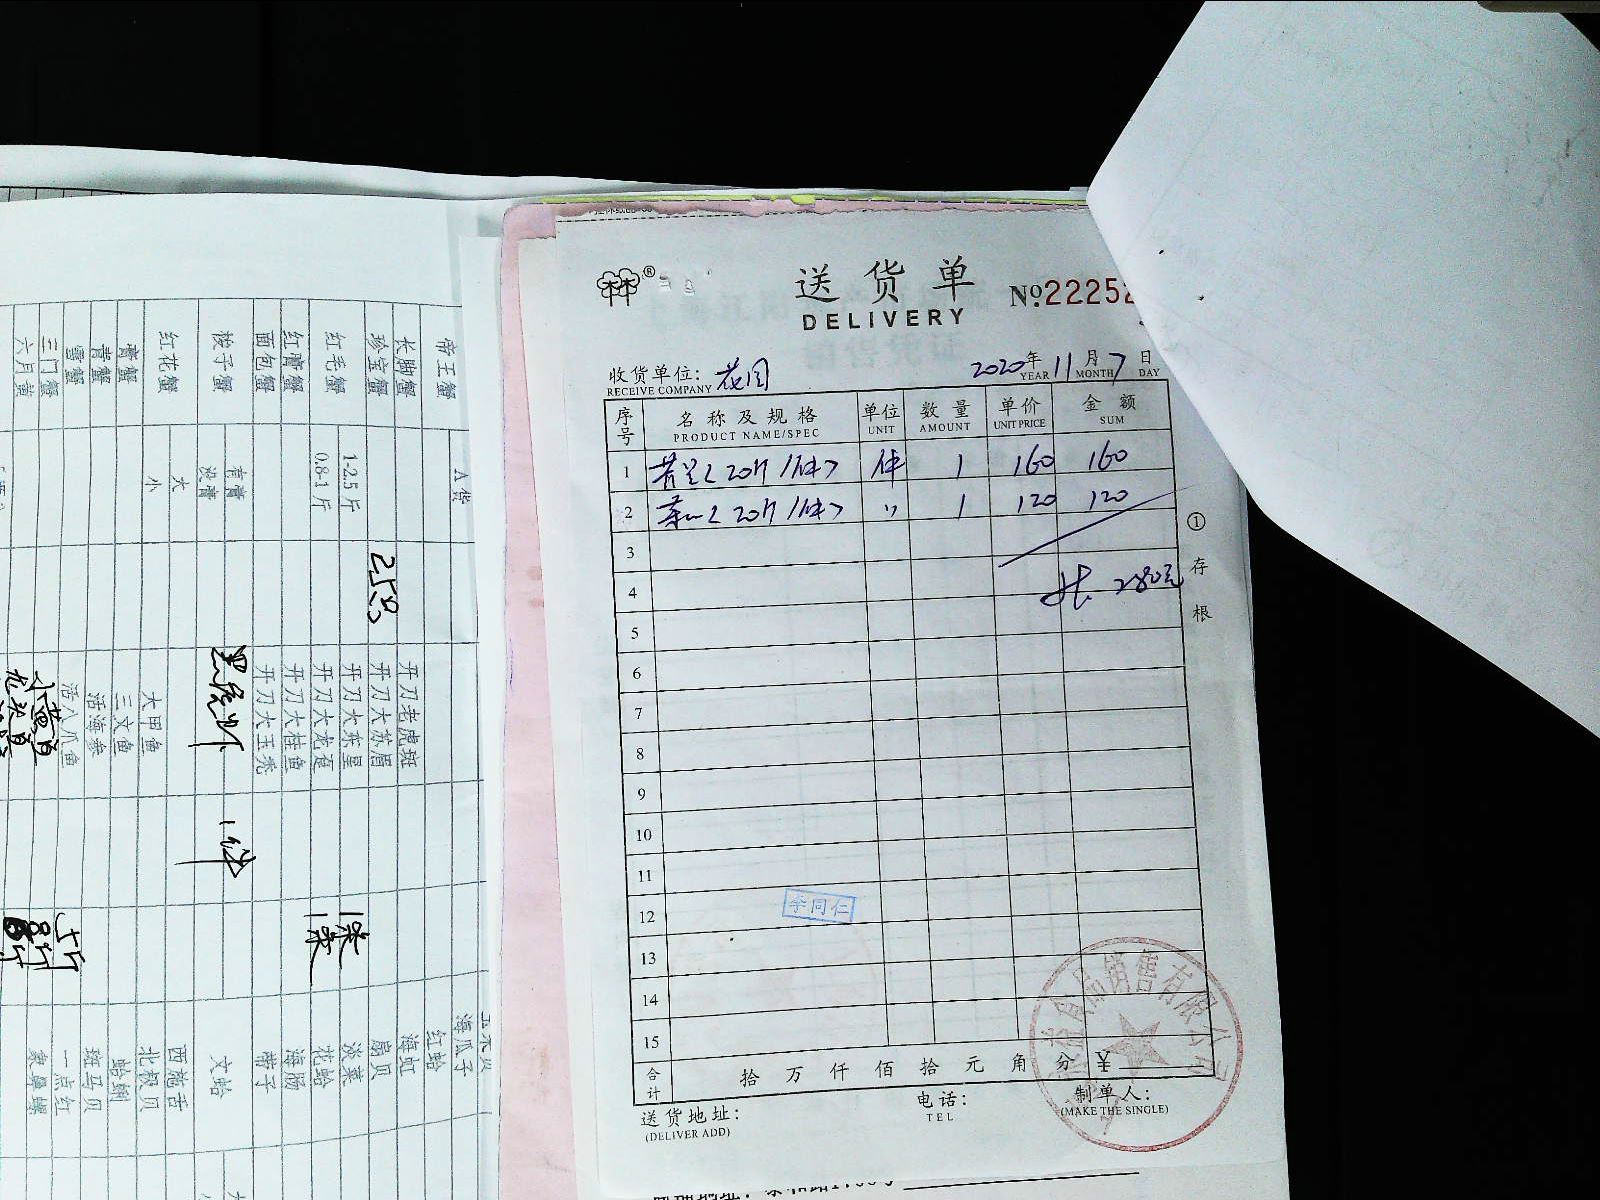 送货单
DELIVERY
№22252
收货单位：花园
RECEIVE COMPANY
2020年11月7日
YEAR MONTH DAY
序号 名称及规格 单位 数量 单价 金额
PRODUCT NAME/SPEC UNIT AMOUNT UNIT PRICE SUM
1 <20斤/件> 件 1 160 160
2 <20斤/件> 〃 1 120 120
3
4 共 280元
5
6
7
8
9
10
11
12 李同仁
13
14
15
合计 拾 万 仟 佰 拾 元 角 分 ¥
送货地址：
(DELIVER ADD)
电话：
TEL
制单人：
(MAKE THE SINGLE)
①存根
食品销售有限公司
帝王蟹 A货
长脚蟹
珍宝蟹
红毛蟹 1-2.5斤
0.8-1斤
红膏蟹
面包蟹
梭子蟹 有膏
没膏
红花蟹 大
小
膏蟹
青蟹
雪蟹
三门蟹
六月黄
开刀老虎斑
开刀大苏眉
开刀大东星
开刀大龙趸
开刀大桂鱼
开刀大玉秃
大甲鱼
三文鱼
活海参
活八爪鱼
海瓜子
红蛤
海虹
扇贝
淡菜
花蛤
海肠
带子
文蛤
西施舌
北极贝
蛤蜊
斑马贝
一点红
象鼻螺